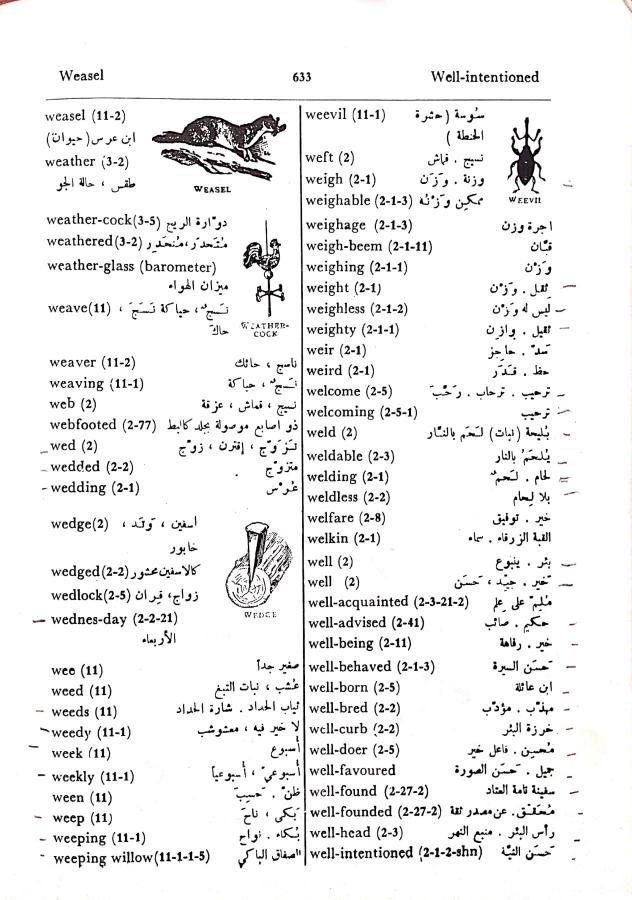 Weasel 633 Well-intentioned
weasel (11-2)
ابن عرس (حيوان)
weather (3-2)
طقس ، حالة الجو
WEASEL
weather-cock(3-5) دوّارة الريح
weathered(3-2) مُتَحدّر، مُنحَدِر
weather-glass (barometer)
ميزان الهواء
weave(11) نَسَجَ ، حياكة نَسْج ،
حاكَ
WEATHER-
COCK
weaver (11-2) ناسج ، حائك
weaving (11-1) نَسْج ، حياكة
web (2) نسيج ، قماش ، عزقة
webfooted (2-77) ذو اصابع موصولة بجلد كالبط
wed (2) تَزوّجَ ، إقترن ، زوّج
wedded (2-2) متزوّج
wedding (2-1) عُرْس
wedge(2) اسفين ، وَتَد ،
خابور
wedged(2-2) كالاسفين محشور
wedlock(2-5) زواج، قِران
WEDGE
wednes-day (2-2-21)
الأربعاء
wee (11) صغير جداً
weed (11) عُشب ، نبات التبغ
weeds (11) ثياب الحداد . شارة الحداد
weedy (11-1) لا خير فيه ، معشوشب
week (11) أسبوع
weekly (11-1) أسبوعيّ ، أسبوعياً
ween (11) ظنّ . حَسِبَ
weep (11) بَكى ، ناحَ
weeping (11-1) بُكاء . نواح
weeping willow(11-1-1-5) الصفاق الباكي
weevil (11-1) سُوسة (حشرة
الحنطة )
WEEVIL
weft (2) نسيج . قماش
weigh (2-1) وزنة . وَزَن
weighable (2-1-3) ممكن وَزْنُه
weighage (2-1-3) اجرة وزن
weigh-beem (2-1-11) قبّان
weighing (2-1-1) وَزْن
weight (2-1) ثقل . وَزْن
weighless (2-1-2) ليس له وَزْن
weighty (2-1-1) ثقيل . وازن
weir (2-1) سَدّ . حاجز
weird (2-1) حظ . قَدَر
welcome (2-5) ترحيب . ترحاب . رَحّبَ
welcoming (2-5-1) ترحيب
weld (2) بليحة (نبات) لَحَم بالنَّار
weldable (2-3) يُلحَمُ بالنار
welding (2-1) لحام . لَحْم
weldless (2-2) بلا لِحام
welfare (2-8) خير . توفيق
welkin (2-1) القبة الزرقاء . سماء
well (2) بئر . ينبوع
well (2) خَير . جيّد ، حَسَن
well-acquainted (2-3-21-2) مُلِمّ على علم
well-advised (2-41) حكيم . صائب
well-being (2-11) خير . رفاهة
well-behaved (2-1-3) حَسَن السيرة
well-born (2-5) ابن عائلة
well-bred (2-2) مهذّب . مؤدّب
well-curb (2-2) خرزة البئر
well-doer (2-5) مُحسِن . فاعل خير
well-favoured جميل . حَسَن الصورة
well-found (2-27-2) سفينة تامة العتاد
well-founded (2-27-2) مُحَقَّق. عن مصدر ثقة
well-head (2-3) رأس البئر . منبع النهر
well-intentioned (2-1-2-shn) حَسَن النيّة